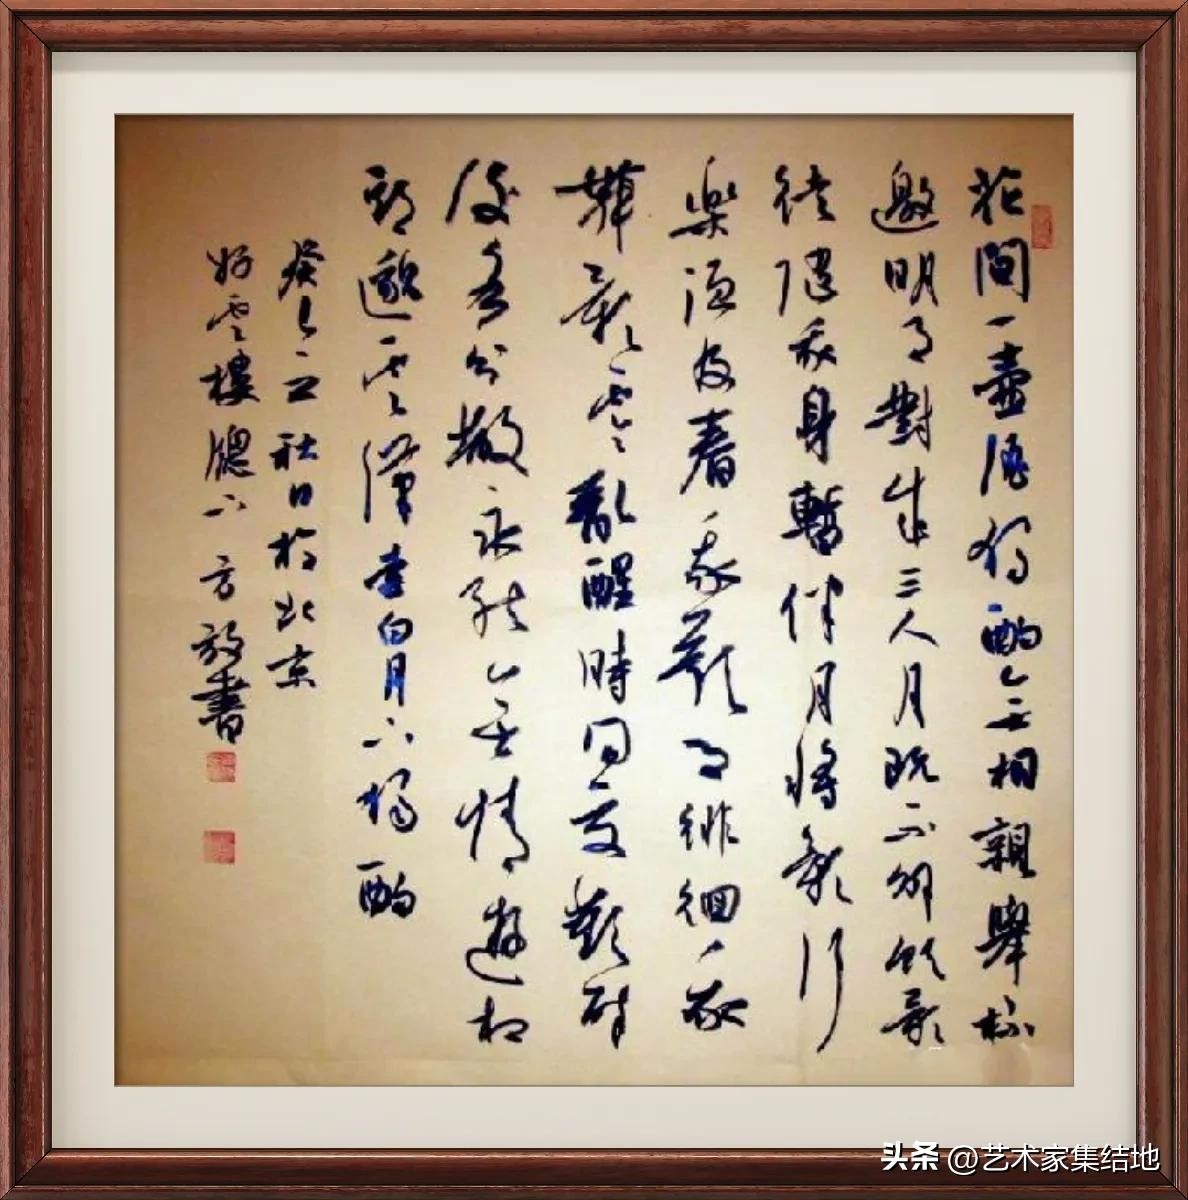 花間一壺酒獨酌無相親舉杯
邀明月對成三人月既不解飲影
徒隨我身暫伴月將影行
樂須及春我歌月徘徊我
舞影零亂醒時同交歡醉
後各分散永結無情遊相
期邈雲漢李白月下獨酌
癸巳立秋日於北京
好雲樓牕下方放書
头条 @艺术家集结地